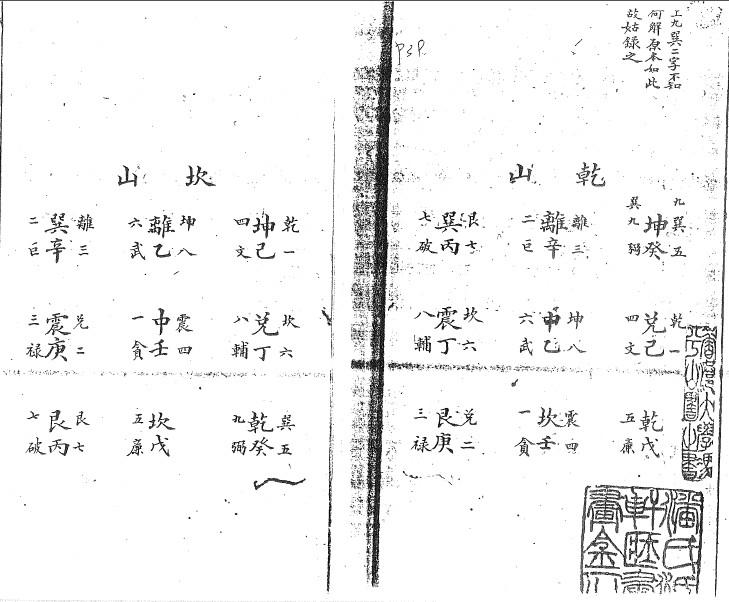 上九巽二字不知
何解原本如此
故姑録之
乾山
九巽五
坤癸
巽九弼
離三
離辛
二巨
艮七
巽丙
七破
乾一
兌己
四文
坤八
中乙
六武
坎六
震丁
八輔
乾戊
五廉
震四
坎壬
一貪
兌二
艮庚
三禄
坎山
乾一
坤己
四文
坤八
離乙
六武
離三
巽辛
二巨
坎六
兌丁
八輔
震四
中壬
一貪
兌二
震庚
三禄
巽五
乾癸
九弼
坎戊
五廉
艮七
艮丙
七破